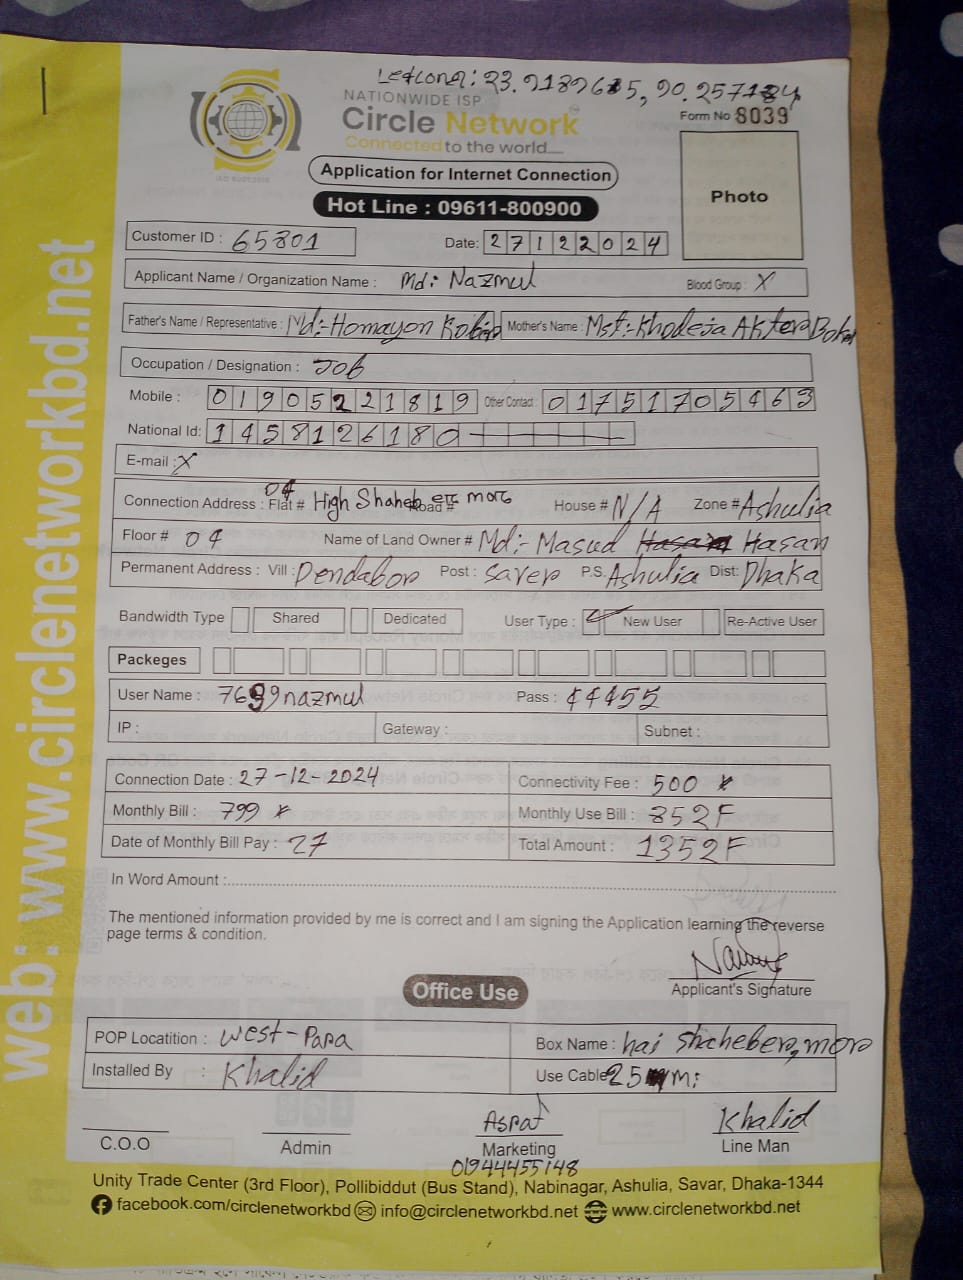 NATIONWIDE ISP
Circle Network
Connected to the world
Form No 8039
Application for Internet Connection
Photo
Hot Line : 09611-800900
Customer ID : 65801 Date: 27122024
Applicant Name / Organization Name : Md: Nazmul Blood Group : X
Father's Name / Representative : Md:-Homayon Mother's Name : Mst:-Khodeja Akter
Occupation / Designation : Job
Mobile : 01905221819 Other Contact : 01751705463
National Id: 1458126180
E-mail : X
Connection Address : Flat # 04 High Shaheb more Road # House # N/A Zone # Ashulia
Floor # 04 Name of Land Owner # Md:- Masud Hasan
Permanent Address : Vill : Dendabor Post : Saver P.S. Ashulia Dist: Dhaka
Bandwidth Type Shared Dedicated User Type : New User Re-Active User
Packeges
User Name : 7699nazmul Pass : 44455
IP : Gateway : Subnet :
Connection Date : 27-12-2024 Connectivity Fee : 500
Monthly Bill : 799 Monthly Use Bill : 852
Date of Monthly Bill Pay : 27 Total Amount : 1352
In Word Amount :
The mentioned information provided by me is correct and I am signing the Application learning the reverse
page terms & condition.
Applicant's Signature
Office Use
POP Locatition : West-Papa Box Name : hai Shaheber, more
Installed By : Khalid Use Cable 25 m:
C.O.O Admin Marketing Khalid Line Man
01944455148
Unity Trade Center (3rd Floor), Pollibiddut (Bus Stand), Nabinagar, Ashulia, Savar, Dhaka-1344
facebook.com/circlenetworkbd info@circlenetworkbd.net www.circlenetworkbd.net
web: www.circlenetworkbd.net